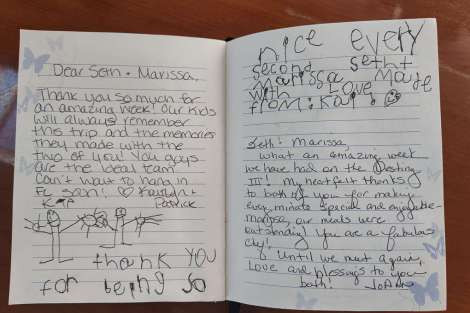 Dear Seth + Marissa,
Thank you so much for
an amazing week! Our kids
will always remember
this trip and the memories
they made with the
two of you! You guys
are the ideal team
Can't wait to hang in
FL soon! ♡ Kaitlyn +
Patrick
thank YOU
for being so
nice every
second Seth +
Marissa Made
with Love
from: Kai
Seth + Marissa,
What an amazing week
we have had on the Destiny
III! My heartfelt thanks
to both of you for making
every minute special and enjoyable-
Marissa, our meals were
outstanding! You are a fabulous
chef!
Until we meet again,
Love and blessings to you
both! JoAnn